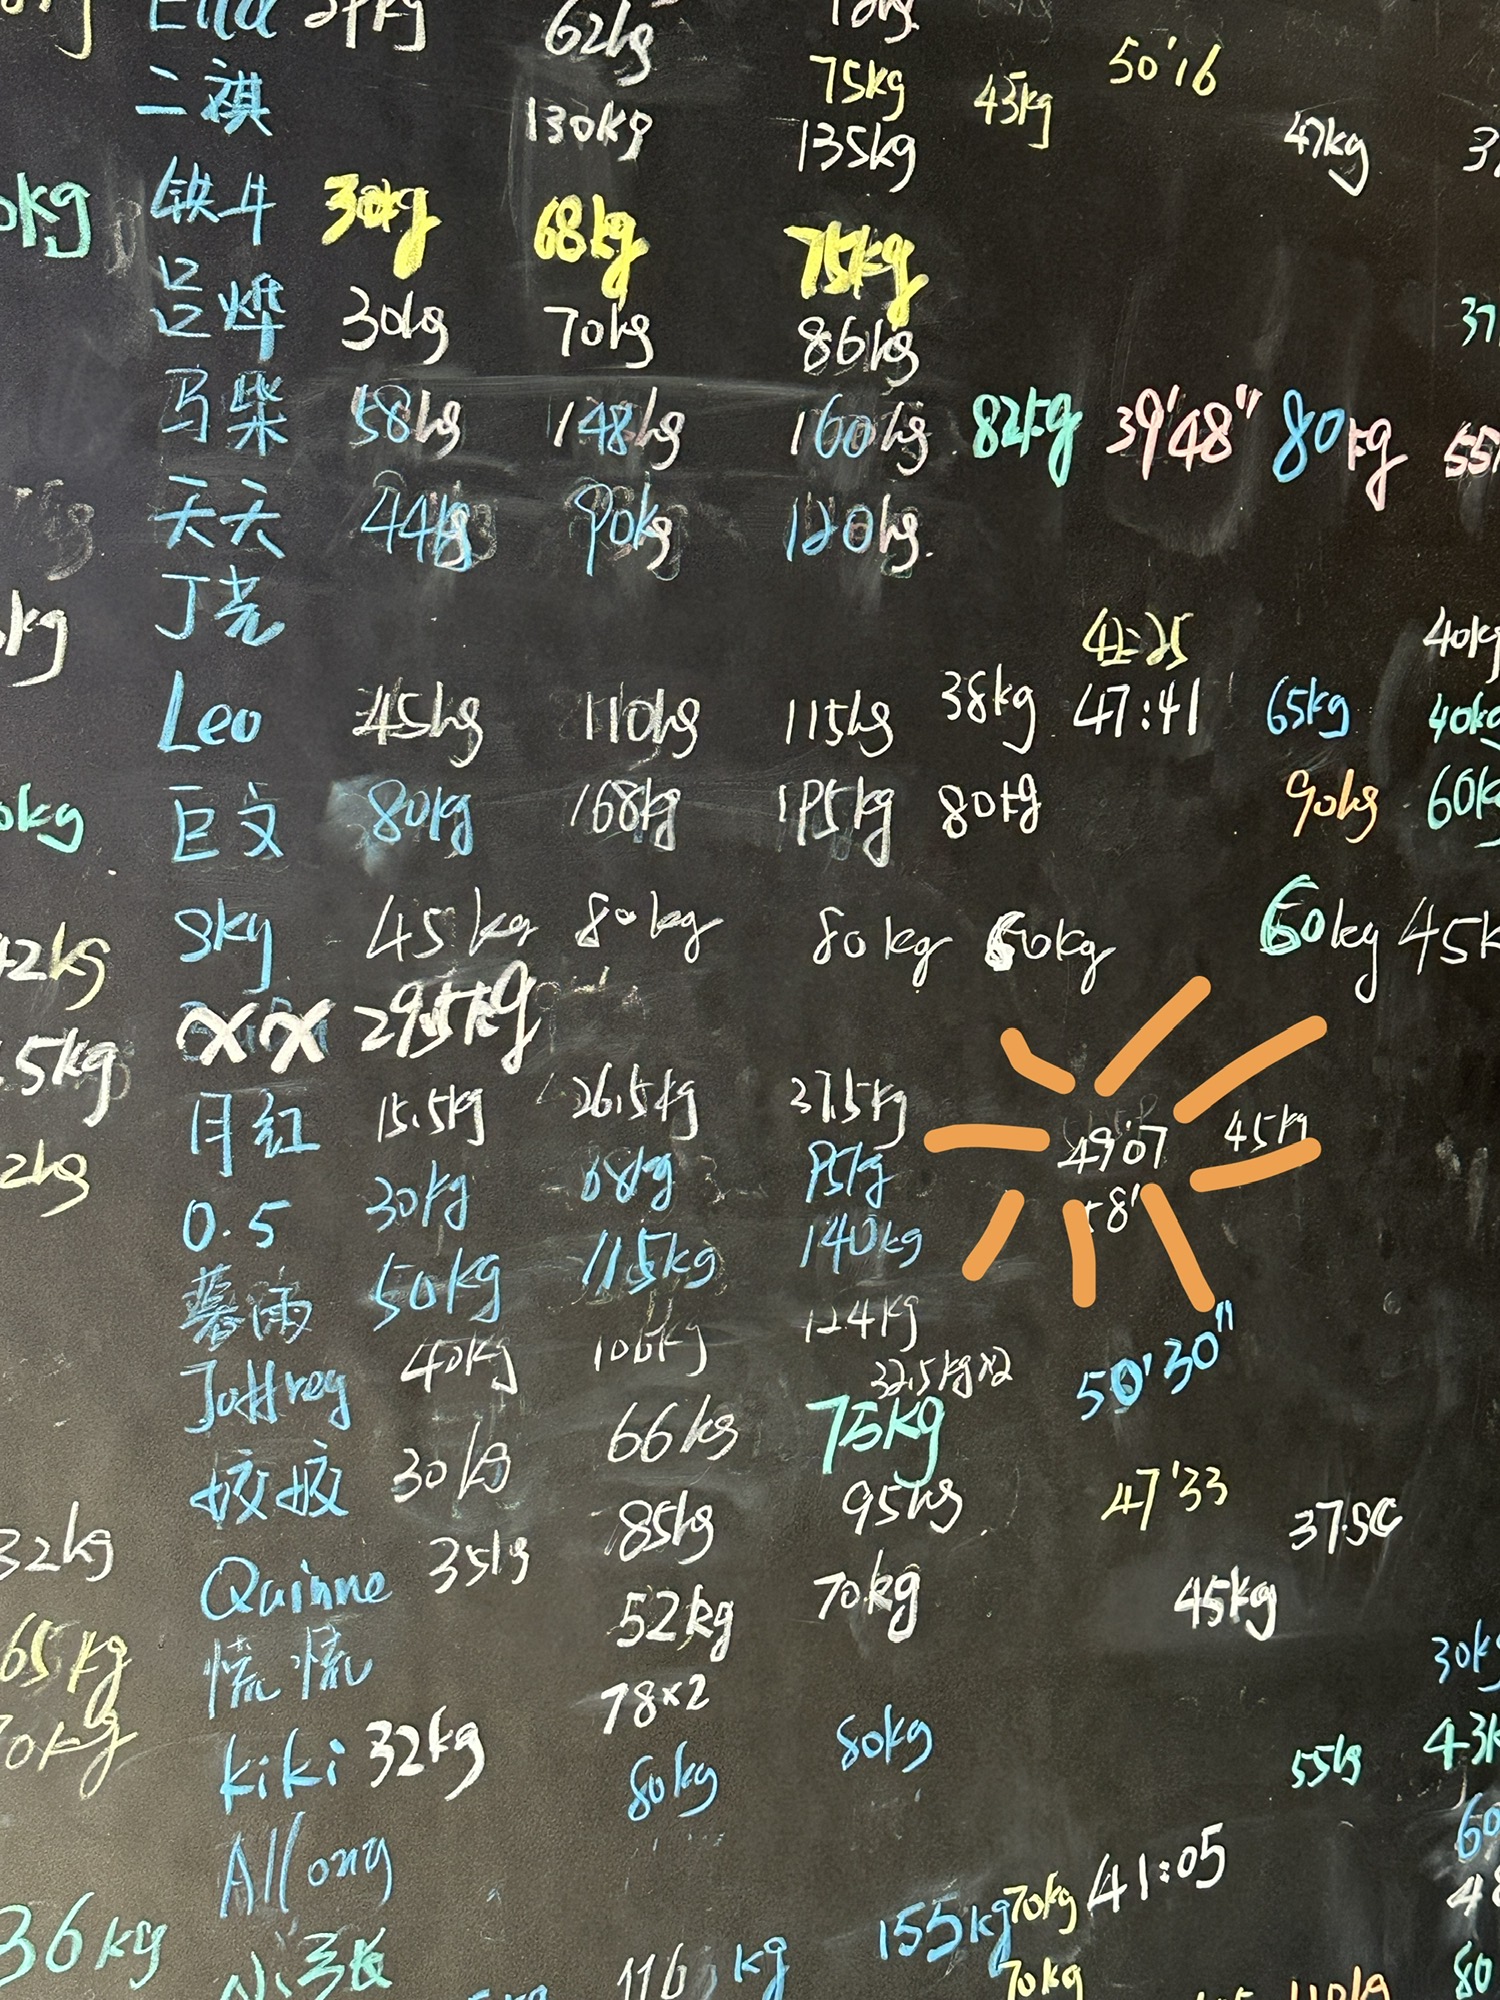 62kg
二祺 130kg 75kg 45kg 50'16
135kg 47kg
铁斗 30kg 68kg 75kg
吕烨 30kg 70kg 86kg
马柴 58kg 148kg 160kg 82kg 39'48" 80kg
天天 44kg 90kg 120kg
丁老
42:25 40kg
Leo 45kg 110kg 115kg 38kg 47:41 65kg 40kg
巨文 80kg 168kg 195kg 80kg 90kg 60kg
Sky 45kg 80kg 80kg 60kg 60kg 45k
XX 29.5kg
月红 15.5kg 26.5kg 37.5kg 49'07 45kg
0.5 30kg 68kg 95kg 58'
暮雨 50kg 115kg 140kg
Joffrey 40kg 106kg 124kg
32.5kg×2 50'30"
姣姣 30kg 66kg 75kg
Quinne 35kg 85kg 95kg 47'33 37.5
慌慌 52kg 70kg 45kg
78×2 30k
kiki 32kg 80kg 80kg 55kg 43k
Allong
41:05
小张 116kg 155kg 70kg
36kg 70kg 80